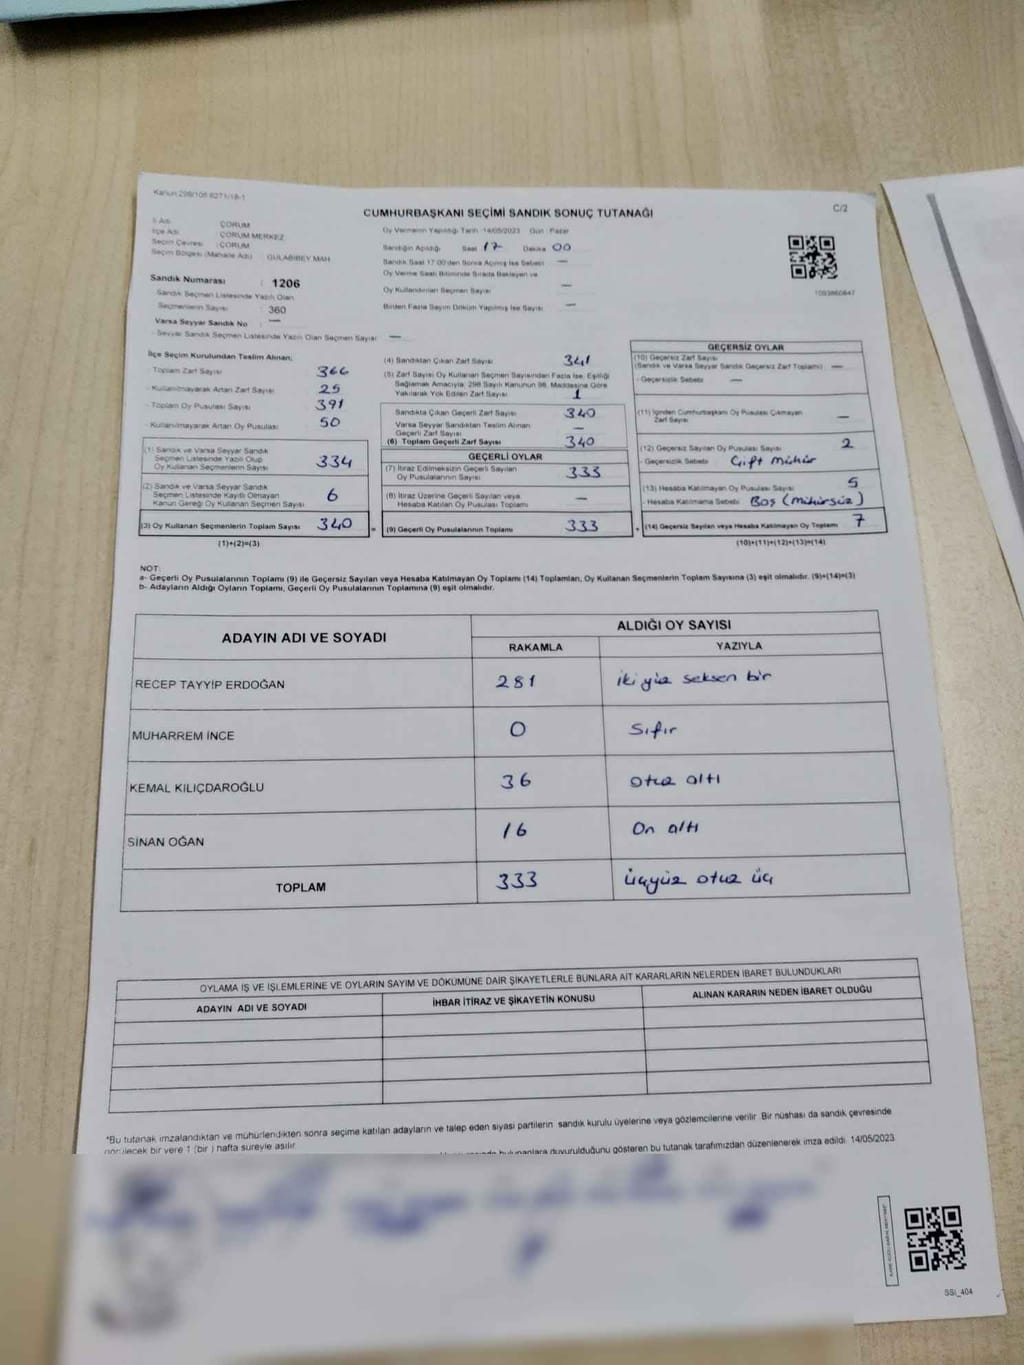 Kanun 298/105 6271/18-1
CUMHURBAŞKANI SEÇİMİ SANDIK SONUÇ TUTANAĞI
C/2
İl Adı : ÇORUM
İlçe Adı : ÇORUM MERKEZ
Seçim Çevresi : ÇORUM
Seçim Bölgesi (Mahalle Adı) : GÜLABİBEY MAH
Sandık Numarası : 1206
Sandık Seçmen Listesinde Yazılı Olan
Seçmenlerin Sayısı : 360
Varsa Seyyar Sandık No : —
- Seyyar Sandık Seçmen Listesinde Yazılı Olan Seçmen Sayısı : —
Oy Vermenin Yapıldığı Tarih: 14/05/2023 Gün : Pazar
Sandığın Açıldığı Saat 17 Dakika 00
Sandık Saat 17:00'den Sonra Açılmış İse Sebebi —
Oy Verme Saati Bitiminde Sırada Bekleyen ve
Oy Kullandırılan Seçmen Sayısı —
Birden Fazla Sayım Döküm Yapılmış İse Sayısı —
1093860647
İlçe Seçim Kurulundan Teslim Alınan;
- Toplam Zarf Sayısı 366
- Kullanılmayarak Artan Zarf Sayısı 25
- Toplam Oy Pusulası Sayısı 391
- Kullanılmayarak Artan Oy Pusulası 50
(1) Sandık ve Varsa Seyyar Sandık
Seçmen Listesinde Yazılı Olup
Oy Kullanan Seçmenlerin Sayısı 334
(2) Sandık ve Varsa Seyyar Sandık
Seçmen Listesinde Kayıtlı Olmayan
Kanun Gereği Oy Kullanan Seçmen Sayısı 6
(3) Oy Kullanan Seçmenlerin Toplam Sayısı 340
(1)+(2)=(3)
(4) Sandıktan Çıkan Zarf Sayısı 341
(5) Zarf Sayısı Oy Kullanan Seçmen Sayısından Fazla İse, Eşitliği
Sağlamak Amacıyla; 298 Sayılı Kanunun 98. Maddesine Göre
Yakılarak Yok Edilen Zarf Sayısı 1
Sandıkta Çıkan Geçerli Zarf Sayısı 340
Varsa Seyyar Sandıktan Teslim Alınan
Geçerli Zarf Sayısı —
(6) Toplam Geçerli Zarf Sayısı 340
GEÇERLİ OYLAR
(7) İtiraz Edilmeksizin Geçerli Sayılan
Oy Pusulalarının Sayısı 333
(8) İtiraz Üzerine Geçerli Sayılan veya
Hesaba Katılan Oy Pusulalarının Toplamı —
= (9) Geçerli Oy Pusulalarının Toplamı 333
GEÇERSİZ OYLAR
(10) Geçersiz Zarf Sayısı
(Sandık ve Varsa Seyyar Sandık Geçersiz Zarf Toplamı) —
- Geçersizlik Sebebi —
(11) İçinden Cumhurbaşkanı Oy Pusulası Çıkmayan
Zarf Sayısı —
(12) Geçersiz Sayılan Oy Pusulası Sayısı 2
- Geçersizlik Sebebi Çift Mühür
(13) Hesaba Katılmayan Oy Pusulası Sayısı 5
- Hesaba Katılmama Sebebi Boş (mühürsüz)
+ (14) Geçersiz Sayılan veya Hesaba Katılmayan Oy Toplamı 7
(10)+(11)+(12)+(13)=(14)
NOT:
a- Geçerli Oy Pusulalarının Toplamı (9) ile Geçersiz Sayılan veya Hesaba Katılmayan Oy Toplamı (14) Toplamları, Oy Kullanan Seçmenlerin Toplam Sayısına (3) eşit olmalıdır. (9)+(14)=(3)
b- Adayların Aldığı Oyların Toplamı, Geçerli Oy Pusulalarının Toplamına (9) eşit olmalıdır.
ADAYIN ADI VE SOYADI ALDIĞI OY SAYISI
RAKAMLA YAZIYLA
RECEP TAYYİP ERDOĞAN 281 iki yüz seksen bir
MUHARREM İNCE 0 Sıfır
KEMAL KILIÇDAROĞLU 36 otuz altı
SİNAN OĞAN 16 On altı
TOPLAM 333 üçyüz otuz üç
OYLAMA İŞ VE İŞLEMLERİNE VE OYLARIN SAYIM VE DÖKÜMÜNE DAİR ŞİKAYETLERLE BUNLARA AİT KARARLARIN NELERDEN İBARET BULUNDUKLARI
ADAYIN ADI VE SOYADI İHBAR İTİRAZ VE ŞİKAYETİN KONUSU ALINAN KARARIN NEDEN İBARET OLDUĞU
*Bu tutanak imzalandıktan ve mühürlendikten sonra seçime katılan adayların ve talep eden siyasi partilerin sandık kurulu üyelerine veya gözlemcilerine verilir. Bir nüshası da sandık çevresinde
görülecek bir yere 1 (bir ) hafta süreyle asılır. bulunanlara duyurulduğunu gösteren bu tutanak tarafımızdan düzenlenerek imza edildi. 14/05/2023
SSt_404